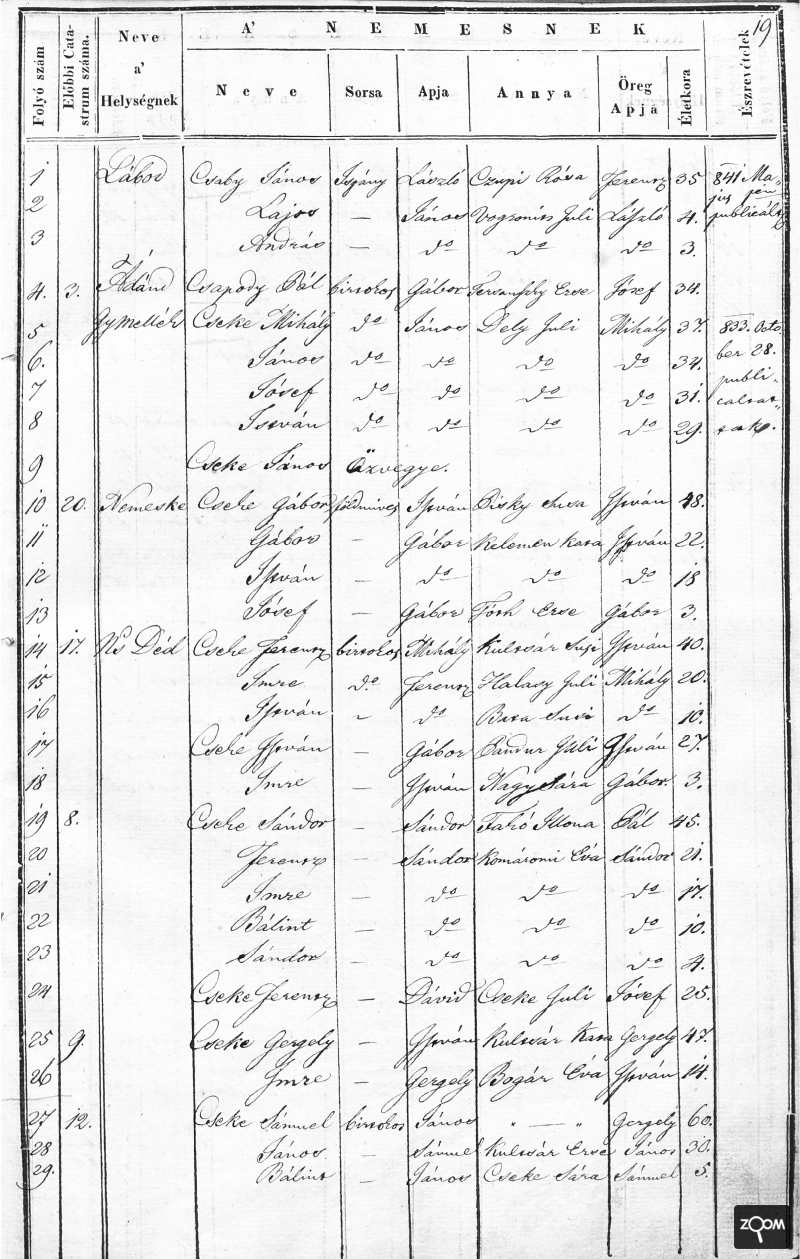 19
A' NEMESNEK
Folyó szám | Előbbi Catastrum száma. | Neve a' Helységnek | Neve | Sorsa | Apja | Annya | Öreg Apja | Életkora | Észrevételek
1 Lábod Csaby János Ispány László Czupi Rósa Ferencz 35 841 Ma-
2 Lajos — János Juli László 4. jus publicált
3 András — do do do 3.
4. 3. Ádánd Csapody Pál birtokos Gábor Erse Jósef 34.
5 Gymellék Cseke Mihály do János Dely Juli Mihály 37. 833. Octo
6. János do do do do 34. ber 28.
7 Jósef do do do do 31. publi-
8 István do do do do 29. caltat-
tak.
9 Cseke János Özvegye.
10 20. Nemeske Cseke Gábor földmives István Bisky Susa István 48.
11 Gábor — Gábor Kelemen Kata István 22.
12 István — do do do 18
13 Jósef — Gábor Tóth Erse Gábor 3.
14 17. Ns Déd Cseke Ferencz birtokos Mihály Kulcsár Susi István 40.
15 Imre do Ferencz Halasy Juli Mihály 20.
16 István - do Susi do 10.
17 Cseke István — Gábor Sandur Juli István 27.
18 Imre — István Nagy Sára Gábor. 3.
19 8. Cseke Sándor — Sándor Illona Pál 45.
20 Ferencz — Sándor Komáromi Éva Sándor 21.
21 Imre — do do do 17.
22 Bálint — do do do 10.
23 Sándor — do do do 4.
24 Cseke Ferencz — Dávid Cseke Juli Jósef 25.
25 9. Cseke Gergely — István Kulcsár Kata Gergely 47.
26 Imre — Gergely Bogár Éva István 14.
27 12. Cseke Sámuel birtokos János " — " Gergely 60.
28 János. — Sámuel Kulcsár Erse János 30.
29. Bálint — János Cseke Sára Sámuel 5.
ZOOM